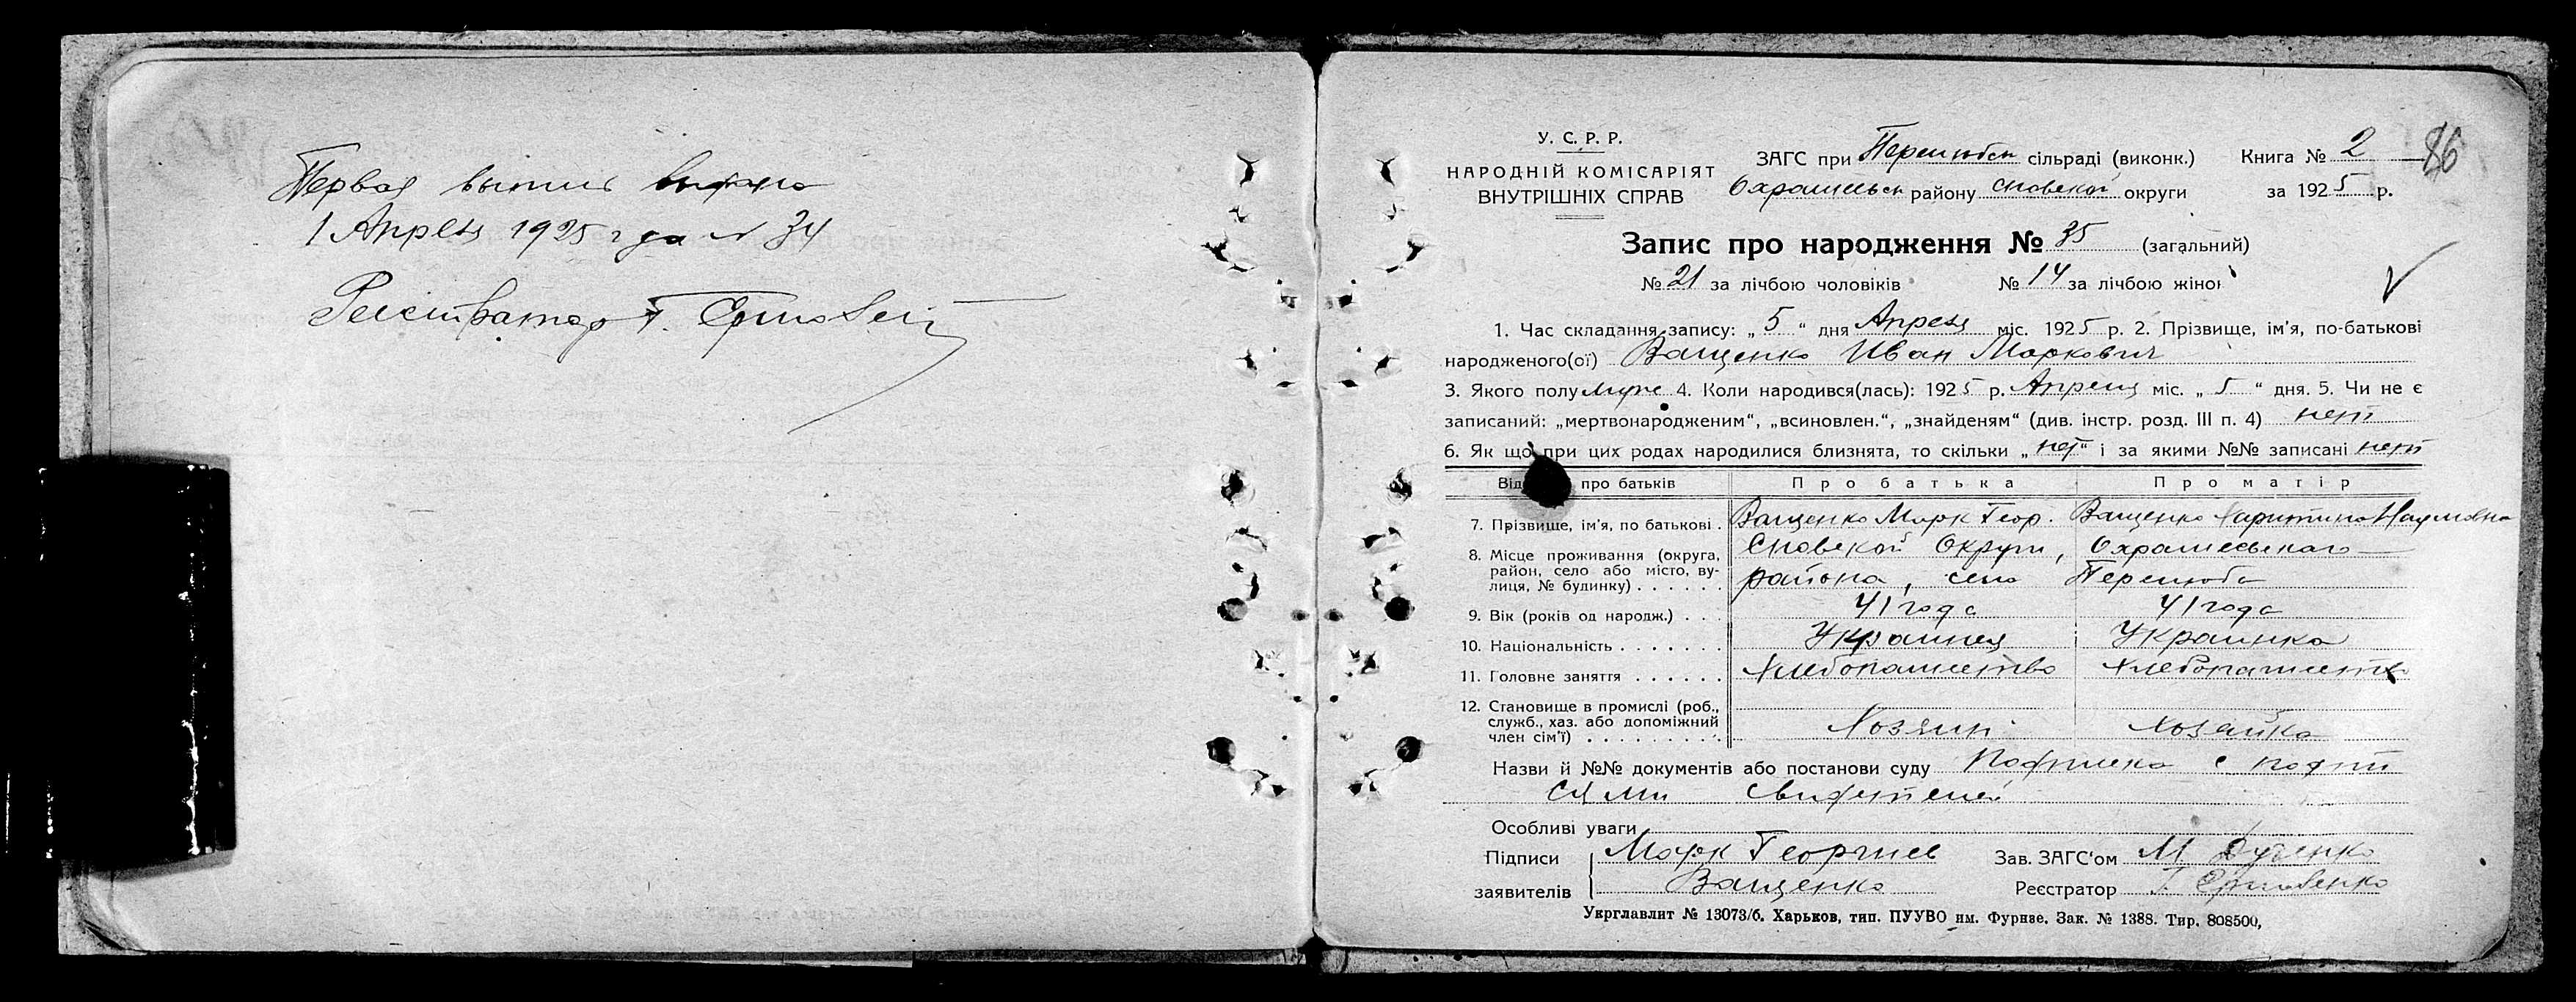 Первая выпись выдана
1 Апреля 1925 года № 34
Регистратор Г.
86
У. С. Р. Р.
НАРОДНІЙ КОМІСАРІЯТ
ВНУТРІШНІХ СПРАВ
ЗАГС при Перелюбск сільраді (виконк.) Книга № 2
района Сновской округи за 1925 р.
Запис про народження № 35 (загальний)
№ 21 за лічбою чоловіків № 14 за лічбою жінок
1. Час складання запису: „ 5 “ дня Апреля міс. 1925 р. 2. Прізвище, ім'я, по-батькові
народженого(ої) Ващенко Иван Маркович
3. Якого полу муже 4. Коли народився(лась): 1925 р. Апреля міс. „ 5 “ дня. 5. Чи не є
записаний: „мертвонародженим“, „всиновлен.“, „знайденям“ (див. інстр. розд. III п. 4) нет
6. Як що при цих родах народилися близнята, то скільки „ нет “ і за якими №№ записані нет
Від про батьків Про батька Про матір
7. Прізвище, ім'я, по батькові . Ващенко Марк Геор. Ващенко Харитина Наумовна
8. Місце проживання (округа, район, село або місто, вулиця, № будинку) . . . . . . Сновской Округи, района, село Перелюба
9. Вік (років од народж.) . . . 41 года 41 года
10. Національність . . . . . . . Украинец Украинка
11. Головне заняття . . . . . . Хлебопашество Хлебопашество
12. Становище в промислі (роб., служб., хаз. або допоміжний член сім'ї) . . . . . . . . . Хозяин Хозяйка
Назви й №№ документів або постанови суду Подписка с подпи
сями свидетелей
Особливі уваги
Підписи заявителів Марк Георгиев Ващенко
Зав. ЗАГС'ом М
Реєстратор Г.
Укрглавлит № 13073/б. Харьков, тип. ПУУВО им. Фрунзе. Зак. № 1388. Тир. 808500,